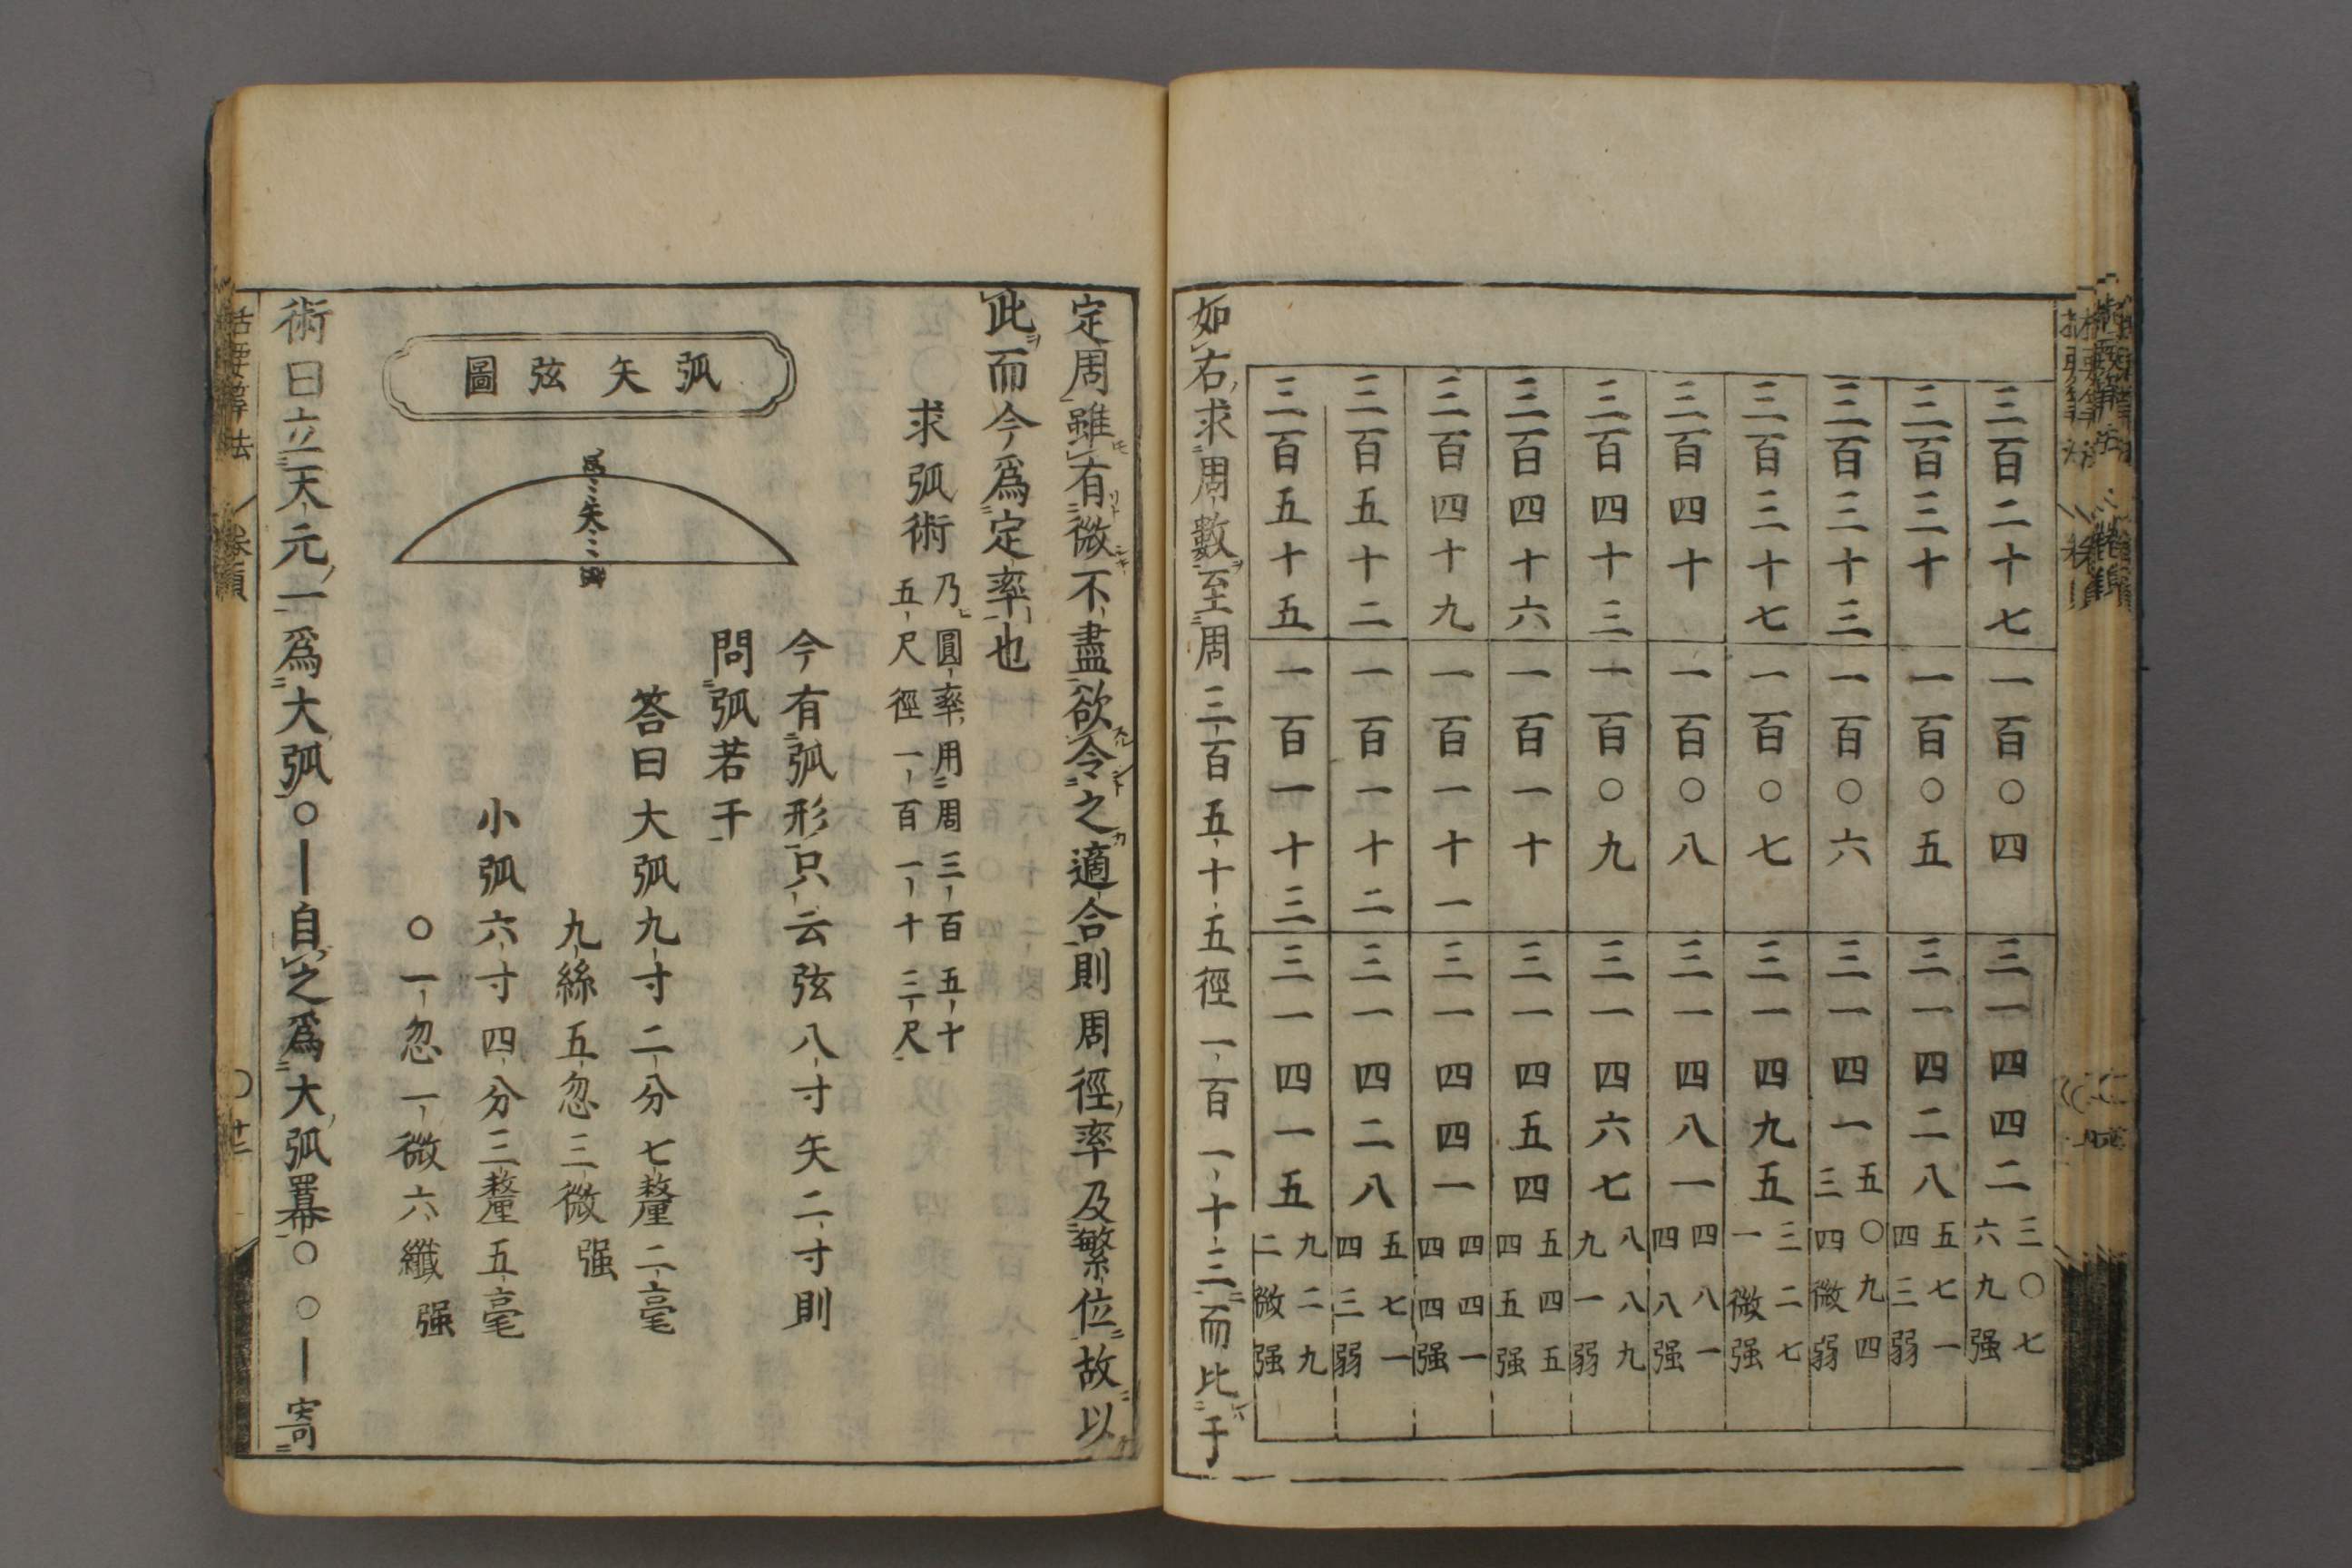 三百二十七 一百〇四 三一四四二三〇七六九强
三百三十 一百〇五 三一四二八五七一四三弱
三百三十三 一百〇六 三一四一五〇九四三四微弱
三百三十七 一百〇七 三一四九五三二七一微强
三百四十 一百〇八 三一四八一四八一四八强
三百四十三 一百〇九 三一四六七八八九九一弱
三百四十六 一百一十 三一四五四五四五四五强
三百四十九 一百一十一 三一四四一四四一四四强
三百五十二 一百一十二 三一四二八五七一四三弱
三百五十五 一百一十三 三一四一五九二九二微强
如右求周數至周三百五十五徑一百一十三而比于
定周雖有微不盡欲令之適合則周徑率及繁位故以
此而今爲定率也
求弧術 乃圓率用周三百五十
五尺徑一百一十三尺
今有弧形只云弦八寸矢二寸則
問弧若干
答曰大弧九寸二分七釐二毫
九絲五忽三微强
小弧六寸四分三釐五毫
〇一忽一微六纖强
弧矢弦圖
矢
術曰立天元一爲大弧〇｜自之爲大弧冪〇〇｜寄